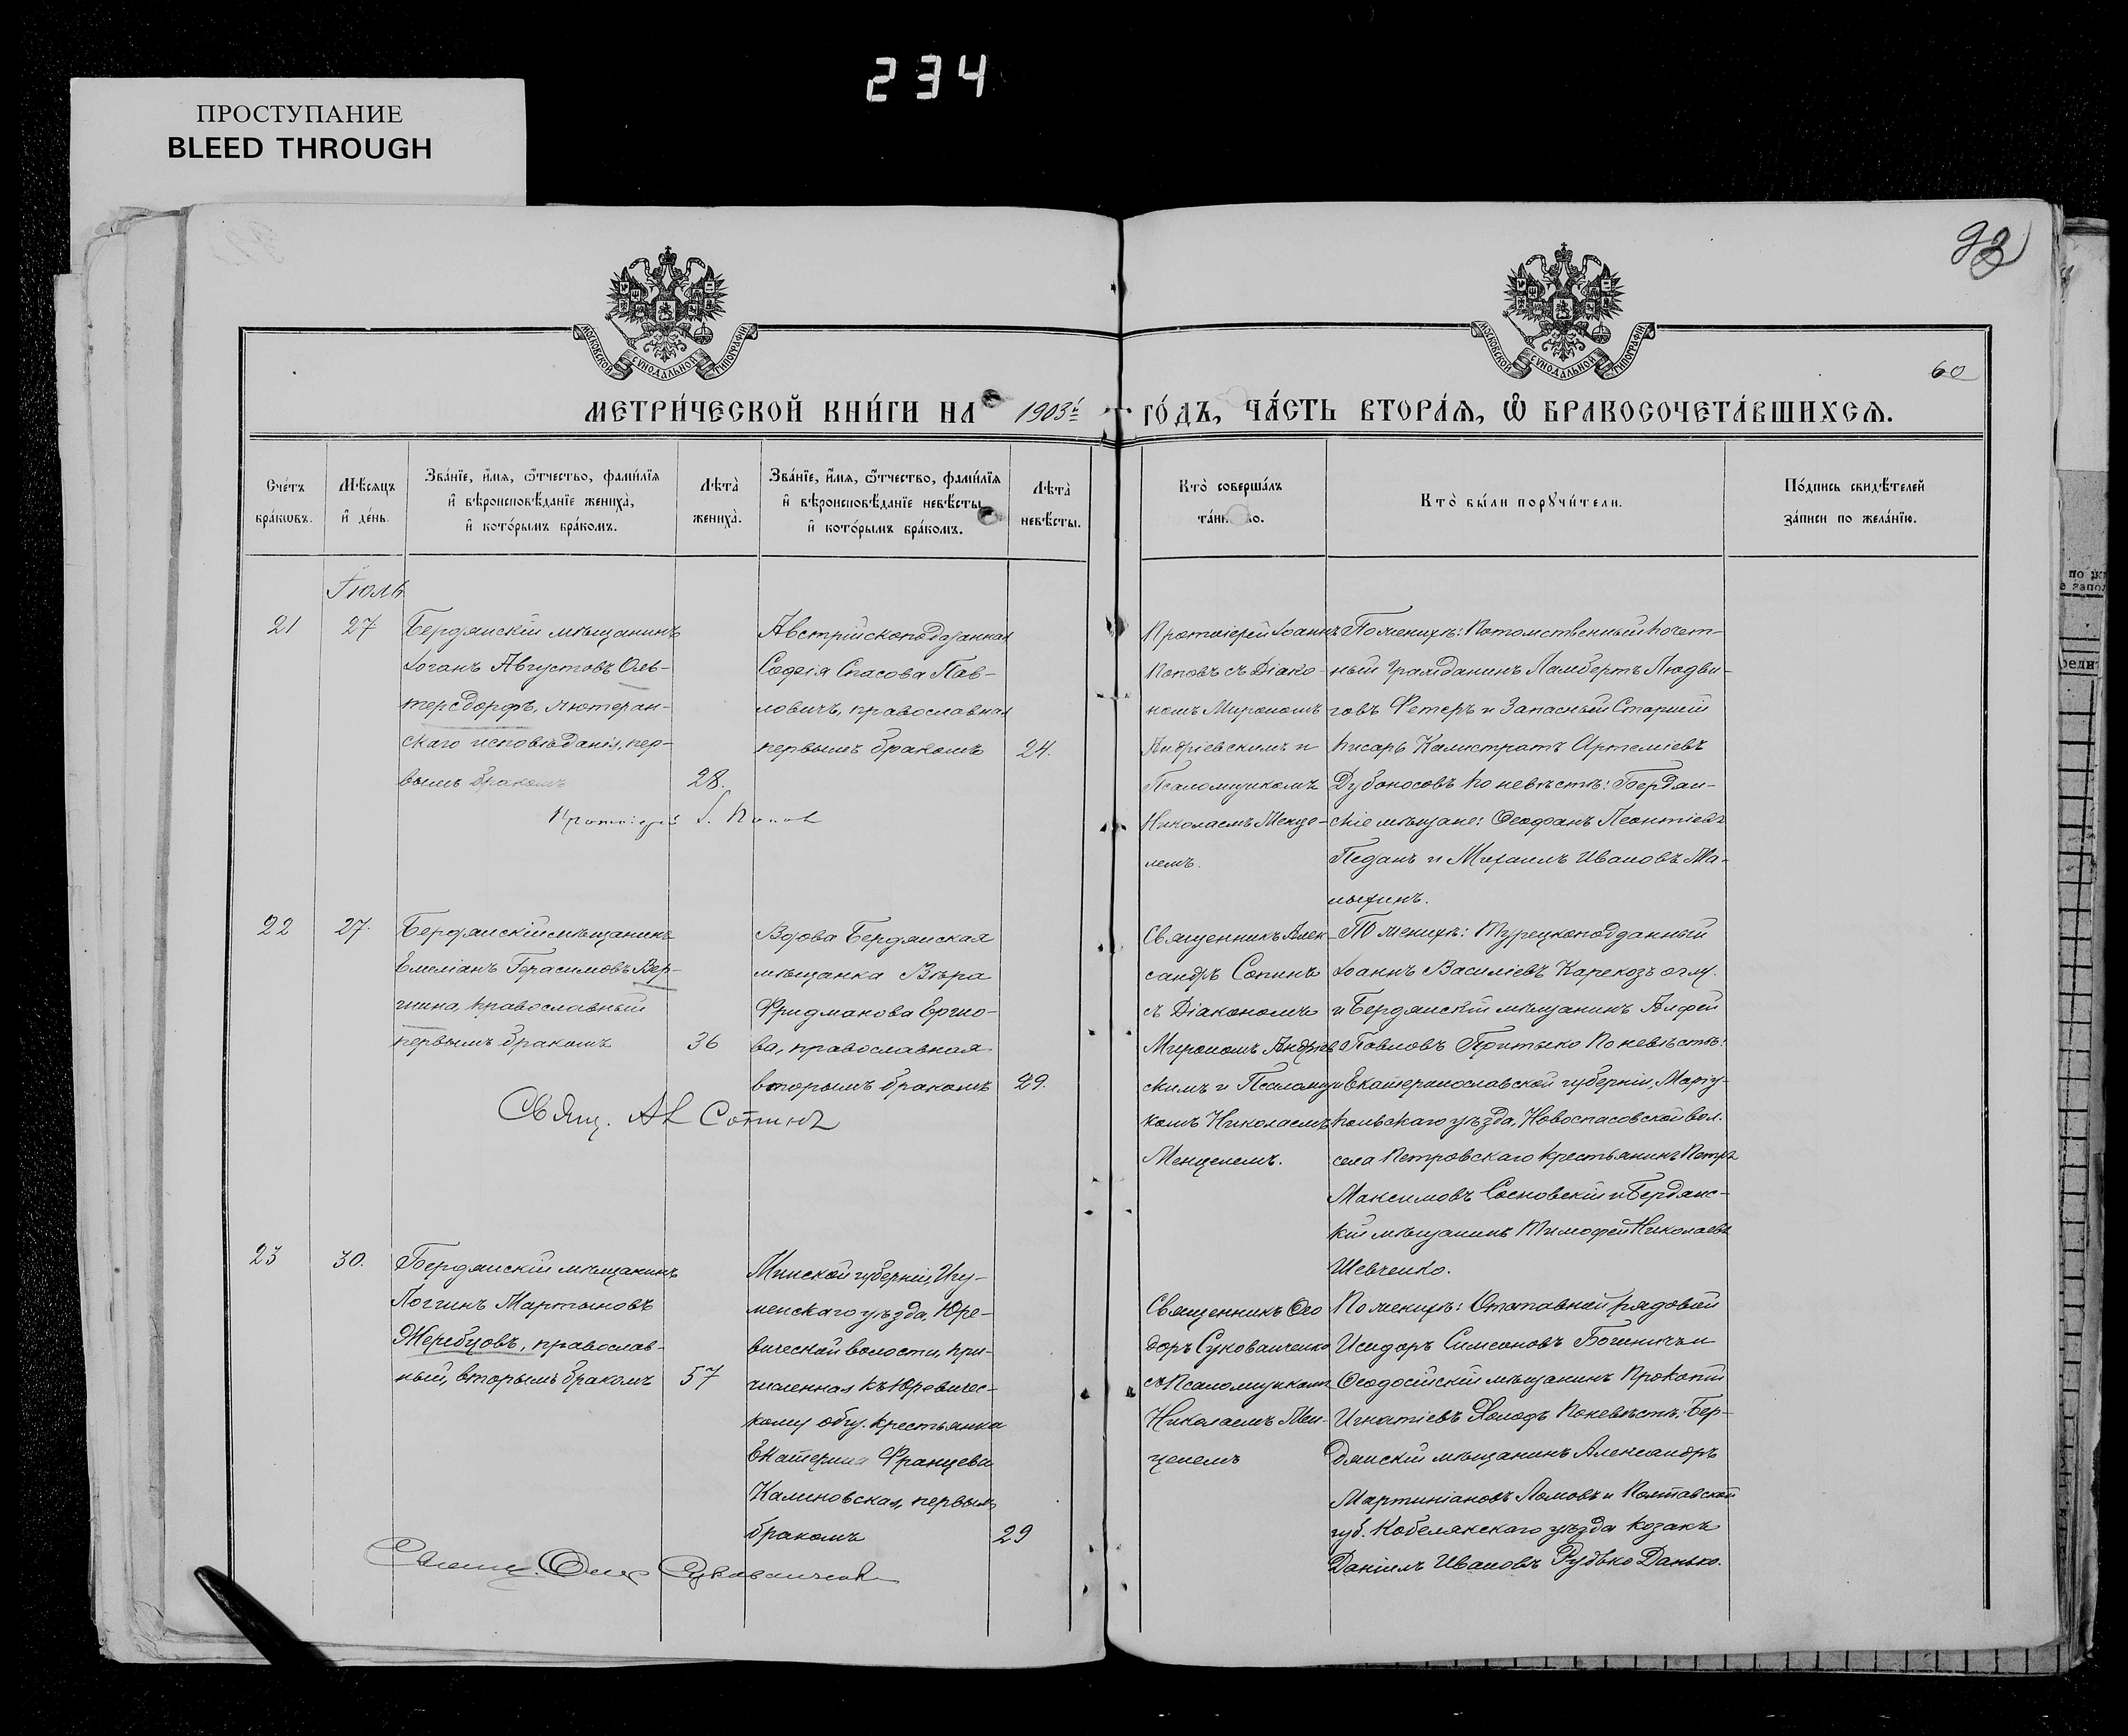 234
ПРОСТУПАНИЕ
BLEED THROUGH
93
МОСКОВСКОЙ СѴНОДАЛЬНОЙ ТИПОГРАФІИ
МОСКОВСКОЙ СѴНОДАЛЬНОЙ ТИПОГРАФІИ
60
МЕТРИ́ЧЕСКОЙ КНИ́ГИ НА 1903й ГО́ДЪ, ЧА́СТЬ ВТОРА́Ѧ, Ѡ҆ БРАКОСОЧЕТА́ВШИХСѦ.
Сче́тъ
бра́кѡвъ.
Мѣ́сяцъ
и҆ де́нь.
Зва́нїе, и҆́мѧ, ѻ҆́тчество, фами́лїѧ
и҆ вѣроисповѣ́данїе жениха̀,
и҆ кото́рымъ бра́комъ.
Лѣта̀
жениха̀.
Зва́нїе, и҆́мѧ, ѻ҆́тчество, фами́лїѧ
и҆ вѣроисповѣ́данїе невѣ́сты,
и҆ кото́рымъ бра́комъ.
Лѣта̀
невѣ́сты.
Кто̀ соверша́лъ
та́ин во.
Кто̀ бы́ли порꙋчи́тели.
По́дпись свидѣ́телей
за́писи по жела́нїю.
Іюль
21
27
Бердянскій мѣщанинъ
Іоганъ Августовъ Оль-
терсдорфъ, лютеран-
скаго исповѣданія, пер-
вымъ бракомъ
28.
Протоіерей І. Попов
Австрійскоподданная
Софія Спасова Пав-
ловичъ, православная
первымъ бракомъ
24.
Протоіерей Іоаннъ
Поповъ съ Діако-
номъ Мирономъ
Андріевскимъ и
Псаломщикомъ
Николаемъ Менце-
лемъ.
По женихѣ: Потомственный почет-
ный гражданинъ Ламбертъ Людви-
говъ Фетеръ и Запасный Старшій
писарь Калистратъ Артеміевъ
Дубоносовъ по невѣстѣ: Бердян-
скіе мѣщане: Ѳеофанъ Леонтіевъ
Педанъ и Михаилъ Ивановъ Ма-
лыхинъ.
22
27.
Бердянскій мѣщанинъ
Емеліанъ Герасимовъ Вер-
гина, православный
первымъ бракомъ
36
Свящ. Ал Сопинъ
Вдова Бердянская
мѣщанка Вѣра
Фридманова
ва, православная
вторымъ бракомъ
29.
Священникъ Алек-
сандръ Сопинъ
съ Діакономъ
Мирономъ Андріев
скимъ и Псаломщи
комъ Николаемъ
Менцелемъ.
По женихѣ: Турецкоподданный
Іоаннъ Василіевъ Карекозъ оглу.
и Бердянскій мѣщанинъ Алфей
Павловъ Притыко По невѣстѣ:
Екатеринославской губерніи, Маріу-
польскаго уѣзда, Новоспасовской вол.
села Петровскаго крестьянинъ Петръ
Максимовъ Сосновскій и Бердянс-
кій мѣщанинъ Тимофей Николаевъ
Шевченко.
23
30.
Бердянскій мѣщанинъ
Логгинъ Мартыновъ
Жеребцовъ, православ-
ный, вторымъ бракомъ
57
Минской губерніи, Игу-
менскаго уѣзда, Юре-
вической волости, при-
численная къ Юревичес-
кому общ. крестьянка
Екатерина Францева
Калиновская, первымъ
бракомъ
29
Священникъ Ѳео
доръ Суковаченко
съ Псаломщикомъ
Николаемъ Мен-
целемъ
По женихѣ: Отставной рядовой
Исидоръ Симеоновъ Богиничъ и
Ѳеодосійскій мѣщанинъ Прокопій
Игнатіевъ Холодъ По невѣстѣ: Бер-
дянскій мѣщанинъ Александръ
Мартиніановъ Ломовъ и Полтавской
губ. Кобелякскаго уѣзда козакъ
Даніилъ Ивановъ Рудько Данько.